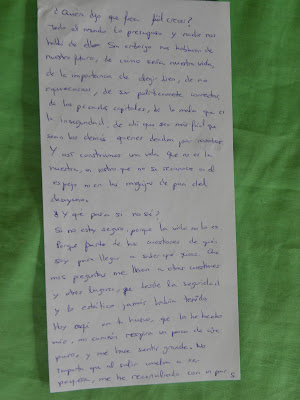 ¿Quien dijo que fuera fácil crecer?
Todo el mundo lo presupone y nadie nos
habló de ellos. Sin embargo nos hablaron de
nuestro futuro, de como sería nuestra vida,
de la importancia de elegir bien, de no
equivocarnos, de ser politicamente correctos,
de los pecados capitales, de lo malo que es
la inseguridad, de ahí que sea más fácil que
sean los demás quienes decidan por nosotros.
Y así construimos una vida que no es la
nuestra, un rostro que no se reconoce en el
espejo ni en las migajas de pan del
desayuno.
¿Y que pasa si no sé?
Si no estoy segura, porque la vida no lo es
Porque parto de las cuestiones de quién
soy para llegar a saber qué quiero. Que
mis preguntas me llevan a otras cuestiones
y otros lugares, que desde la seguridad
y lo estático jamás habría
Hoy aquí en tu hueco, que lo he hecho
mío, mi corazón respira un poco de aire
puro, y me hace sentir grande. No
importa que al salir vuelva a ser
pequeña, me he reconciliado con mi